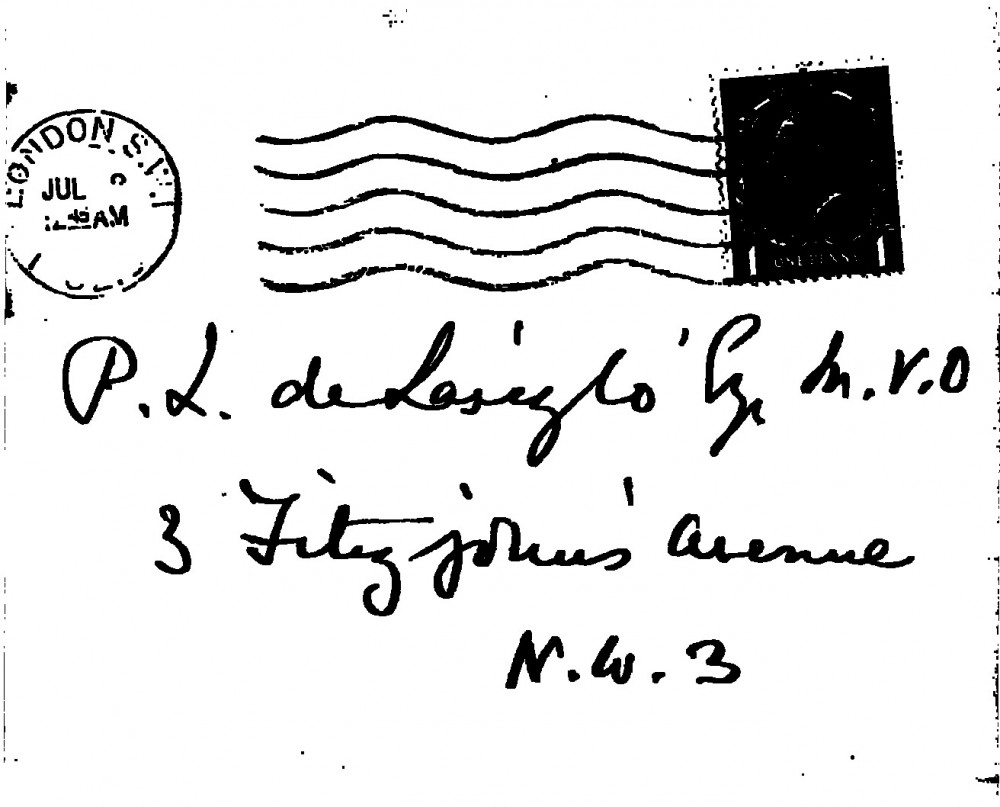 LONDON. S.W.1
JUL
12.45 AM
ONE PENNY
P. L. de László Esq. M.V.O
3 Fitzjohns' Avenue
N.W.3